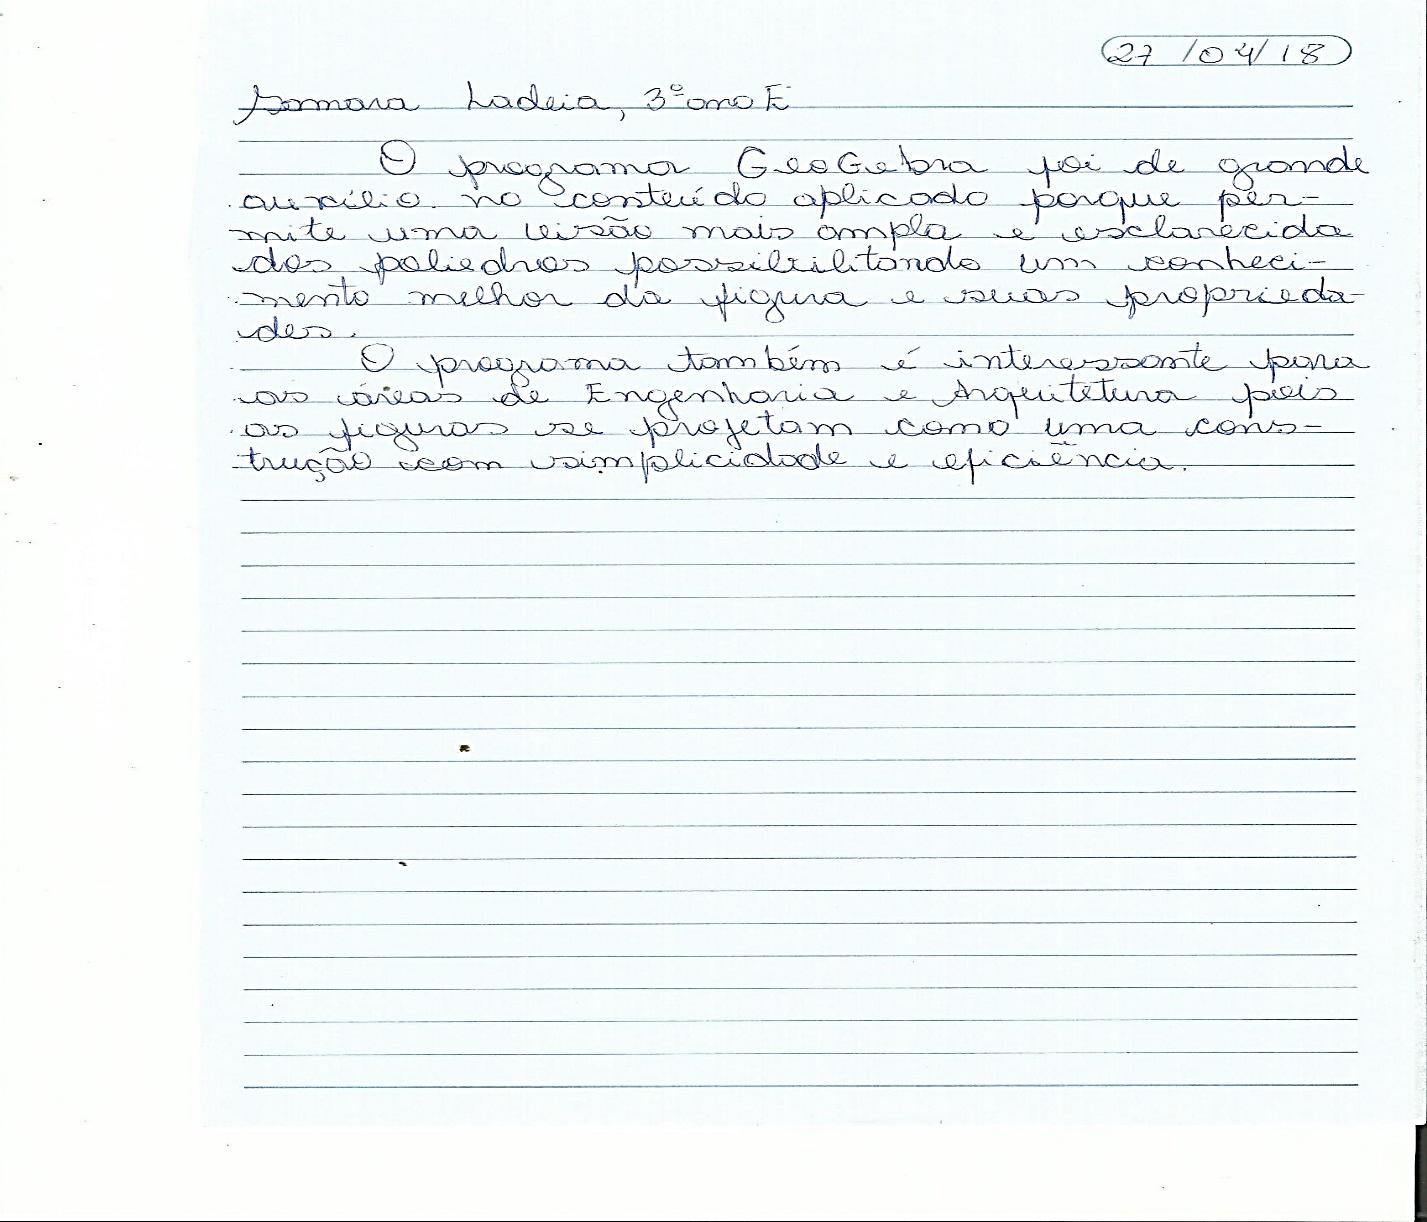 27/04/18
Samara Ladeia, 3º ano E
O programa GeoGebra foi de grande
auxílio no conteúdo aplicado porque per-
mite uma visão mais ampla e esclarecida
dos poliedros possibilitando um conheci-
mento melhor da figura e suas proprieda-
des.
O programa também é interessante para
as áreas de Engenharia e Arquitetura pois
as figuras se projetam como uma cons-
trução com simplicidade e eficiência.